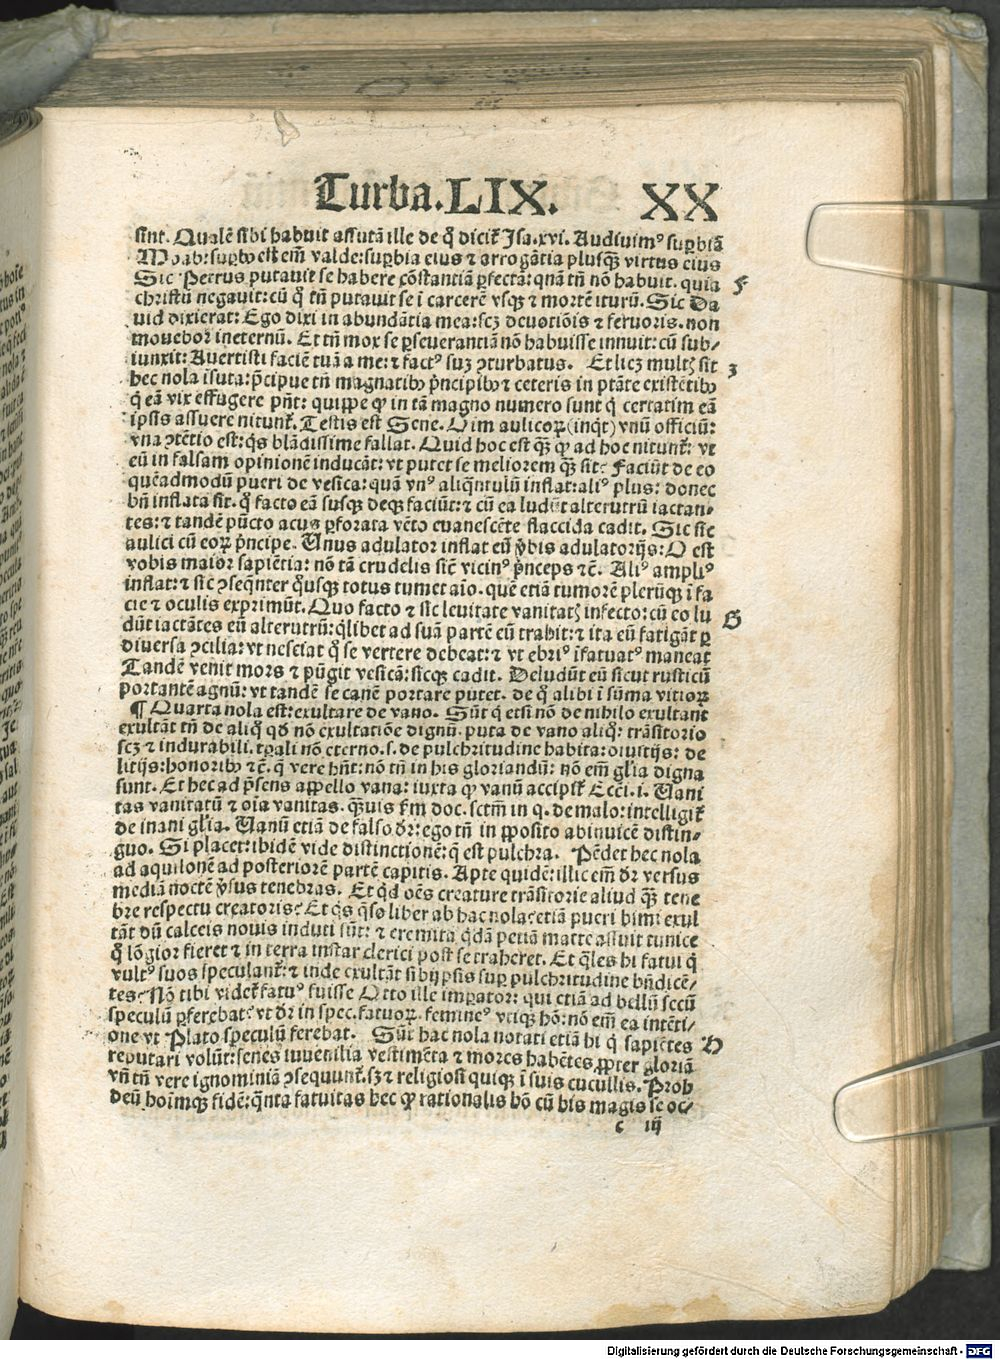 Turba.LIX. XX
sint. Qualē sibi habuit assutā ille de q̊ dicit̉ Isa.xvi. Audiuimꝰ suꝑbiā
Moab: suꝑbꝰ est em̄ valde: suꝑbia eius ⁊ arrogātia plusqꝫ virtus eius
Sic Petrus putauit se habere cōstantiā ꝑfectā: quā tn̄ nō habuit. quia F
christū negauit: cū q̊ tn̄ putauit se ī carcerē vsqꝫ ⁊ mortē iturū. Sic Da
uid dixierat: Ego dixi in abundātia mea: scꝫ deuotiōis ⁊ feruoris. non
mouebor ineternū. Et tn̄ mox se ꝑseuerantiā nō habuisse innuit: cū sub/
iunxit: Auertisti faciē tuā a me: ⁊ factꝰ suꝫ ꝯturbatus. Et licꝫ multꝭ sit 3
hec nola īsuta: p̄cipue tn̄ magnatibꝰ p̄ncipibꝰ ⁊ ceteris in ptāte existētibꝰ
q̄ eā vix effugere pn̄t: quippe qꝫ in tā magno numero sunt q̇ certatim eā
ipsis assuere nitunt̉. Testis est Sene. Oīm aulicoꝝ (inqt) vnū officiū:
vna ꝯtētio est: q̇s blādissime fallat. Quid hoc est qꝫ qꝫ ad hoc nitunt̉: vt
eū in falsam opinionē inducāt: vt putet se meliorem qꝫ sit: Faciūt de eo
quēadmodū pueri de vesica: quā vnꝰ aliq̄ntulū inflat: aliꝰ plus: donec
bn̄ inflata sit. q̊ facto eā susqꝫ deqꝫ faciūt: ⁊ cū ea ludūt alterutrū iactan/
tes: ⁊ tandē pūcto acus ꝑforata vēto euanescēte flaccida cadit. Sic sīe
aulici cū eoꝝ p̄ncipe. Unus adulator inflat eū v̄bis adulatorijs: O est
vobis maior sapiētia: nō tā crudelis sīct vicinꝰ p̄nceps ⁊c̄. Aliꝰ ampliꝰ
inflat: ⁊ sic ꝯseq̄nter q̊usqꝫ totus tumet aīo. quē etiā tumorē plerūqꝫ ī fa
cie ⁊ oculis exprimūt. Quo facto ⁊ sic leuitate vanitatꝭ infecto: cū eo lu G
dūt iactātes eū alterutrū: q̇libet ad suā partē eū trahit: ⁊ ita eū fatigāt ꝑ
diuersa ꝯcilia: vt nesciat q̊ se vertere debeat: ⁊ vt ebriꝰ īfatuatꝰ maneat
Tandē venit mors ⁊ pūgit vesicā: sicqꝫ cadit. Deludūt eū sicut rusticū
portantē agnū: vt tandē se canē portare putet. de q̊ alibi ī sūma vitioꝝ
¶ Quarta nola est: exultare de vano. Sūt q̇ etsi nō de nihilo exultant
exultāt tn̄ de aliq̊ qd̄ nō exultatiōe dignū. puta de vano aliq̊: trāsitorio
scꝫ ⁊ indurabili. tꝑali nō eterno. s. de pulchritudine habita: diuitijs: de
litijs: honoribꝰ ⁊c̄. q̄ vere hn̄t: nō tn̄ in his gloriandū: nō em̄ gl̄ia digna
sunt. Et hec ad p̄sens appello vana: iuxta qꝫ vanū accipit̉ Eccī. i. Uani
tas vanitatū ⁊ oīa vanitas. qꝫuis s̄m doc. sctm̄ in q. de malo: intelligit̉
de inani gl̄ia. Uanū etiā de falso dr̄: ego tn̄ in ꝓposito abinuicē distin/
guo. Si placet: ibidē vide distinctionē: q̄ est pulchra. Pēdet hec nola
ad aquilonē ad posteriorē partē capitis. Apte quidē: illic em̄ dr̄ versus
mediā noctē v̄sus tenebras. Et qd̄ oēs creature trāsitorie aliud qꝫ tene
bre respectu creatoris? Et q̇s q̄so liber ab hac nola? etiā pueri bimi exul
tāt dū calceis nouis induti sūt: ⁊ eremita q̇dā petiā matte assuit tunice
q̊ lōgior fieret ⁊ in terra instar clerici post se traheret. Et q̄les hi fatui q̇
vultꝰ suos speculant̉: ⁊ inde exultāt sibijpsis suꝑ pulchritudine bn̄dicē/
tes? Nō tibi videt̉ fatuꝰ fuisse Otto ille imꝑator: qui etiā ad bellū secū
speculū ꝑferebat? vt dr̄ in spec. fatuoꝝ. femineꝰ vtiqꝫ hō: nō em̄ ea intēti/
one vt Plato speculū ferebat. Sūt hac nola notati etiā hi q̇ sapiētes H
reputari volūt: senes iuuenilia vestimēta ⁊ mores habētes, ꝓpter gloriā
vn̄ tn̄ vere ignominiā ꝯsequunt̉. sꝫ ⁊ religiosi quiqꝫ ī suis cucullis. Proh
deū hoīmqꝫ fidē: q̄nta fatuitas hec qꝫ rationalis hō cū his magis se oc/
c iij
Digitalisierung gefördert durch die Deutsche Forschungsgemeinschaft - DFG